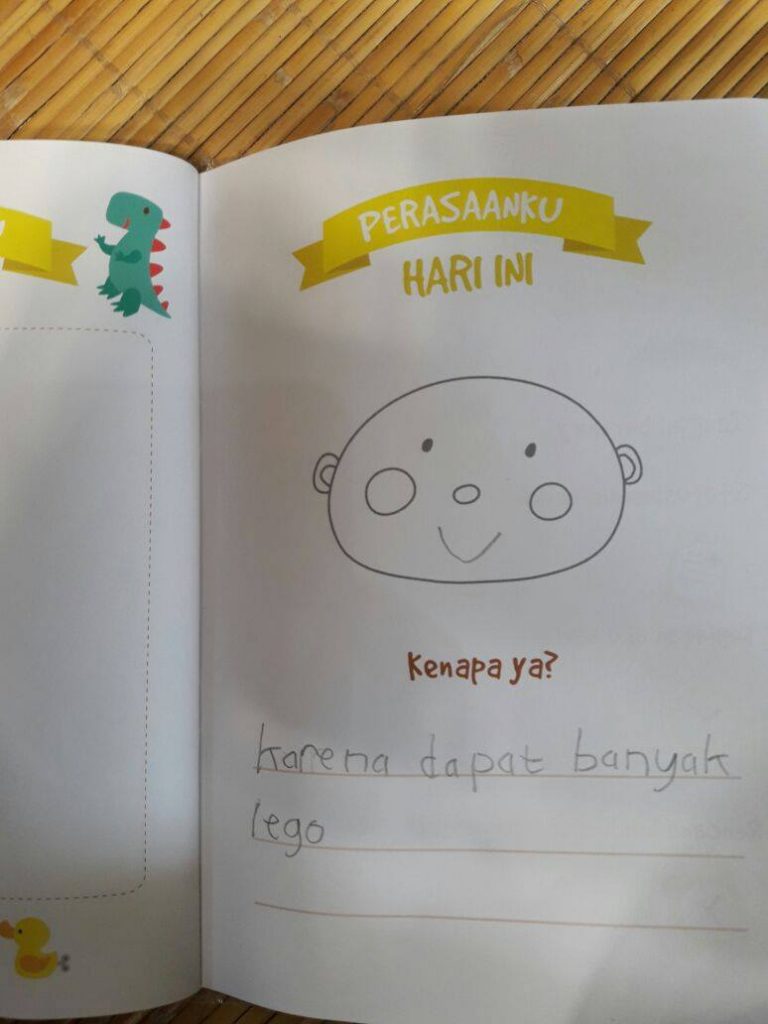 PERASAANKU
HARI INI
Kenapa ya?
karena dapat banyak
lego